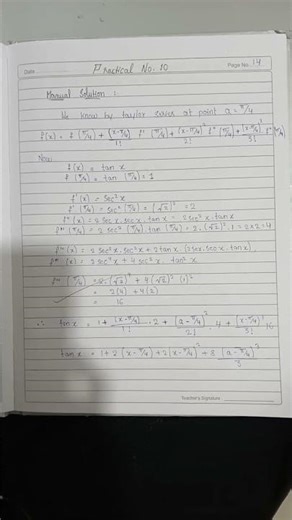 Date
Practical No. 10
Page No. 14
Manual Solution :
We know by taylor series at point a = π/4
f(x) = f(π/4) + (x-π/4)/1! f'(π/4) + (x-π/4)²/2! f''(π/4) + (x-π/4)³/3! f'''(π/4)
Now,
f(x) = tan x
f(π/4) = tan(π/4) = 1
f'(x) = sec²x
f'(π/4) = sec²(π/4) = (√2)² = 2
f''(x) = 2 sec x. sec x. tan x = 2 sec²x. tan x
f''(π/4) = 2 sec²(π/4) tan(π/4) = 2. (√2)². 1 = 2×2 = 4
f'''(x) = 2 sec²x. sec²x + 2 tan x. (2 sec x. sec x tan x)
f'''(x) = 2 sec⁴x + 4 sec²x. tan²x
f'''(π/4) = 2(√2)⁴ + 4(√2)² (1)²
= 2(4) + 4(2)
= 16
∴ tan x = 1 + (x-π/4)/1! . 2 + (a-π/4)²/2! . 4 + (x-π/4)³/3! 16
tan x = 1 + 2(x-π/4) + 2(x-π/4)² + 8 (a-π/4)³/3
Teacher's Signature